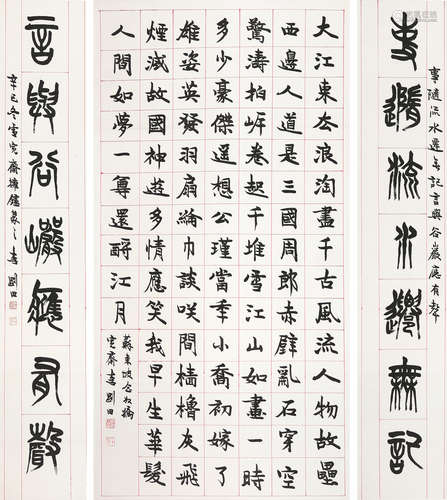 事隨流水還無記
事隨流水還無記言與谷巖應有聲
大江東去浪淘盡千古風流人物故壘
西邊人道是三國周郎赤壁亂石穿空
驚濤拍岸卷起千堆雪江山如畫一時
多少豪傑遥想公瑾當年小喬初嫁了
雄姿英發羽扇綸巾談咲間檣櫓灰飛
煙滅故國神遊多情應笑我早生華髮
人間如夢一尊還酹江月
蘇東坡念奴嬌
齋書劉田
言與谷巖應有聲
辛巳冬齋擁書劉田